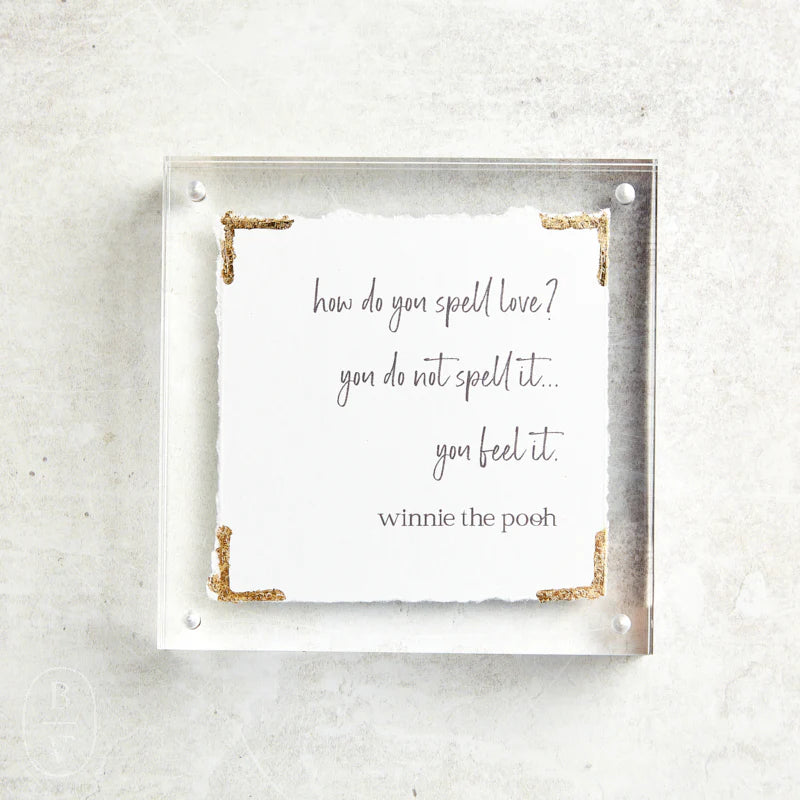 how do you spell love?
you do not spell it...
you feel it.
winnie the pooh
B
V